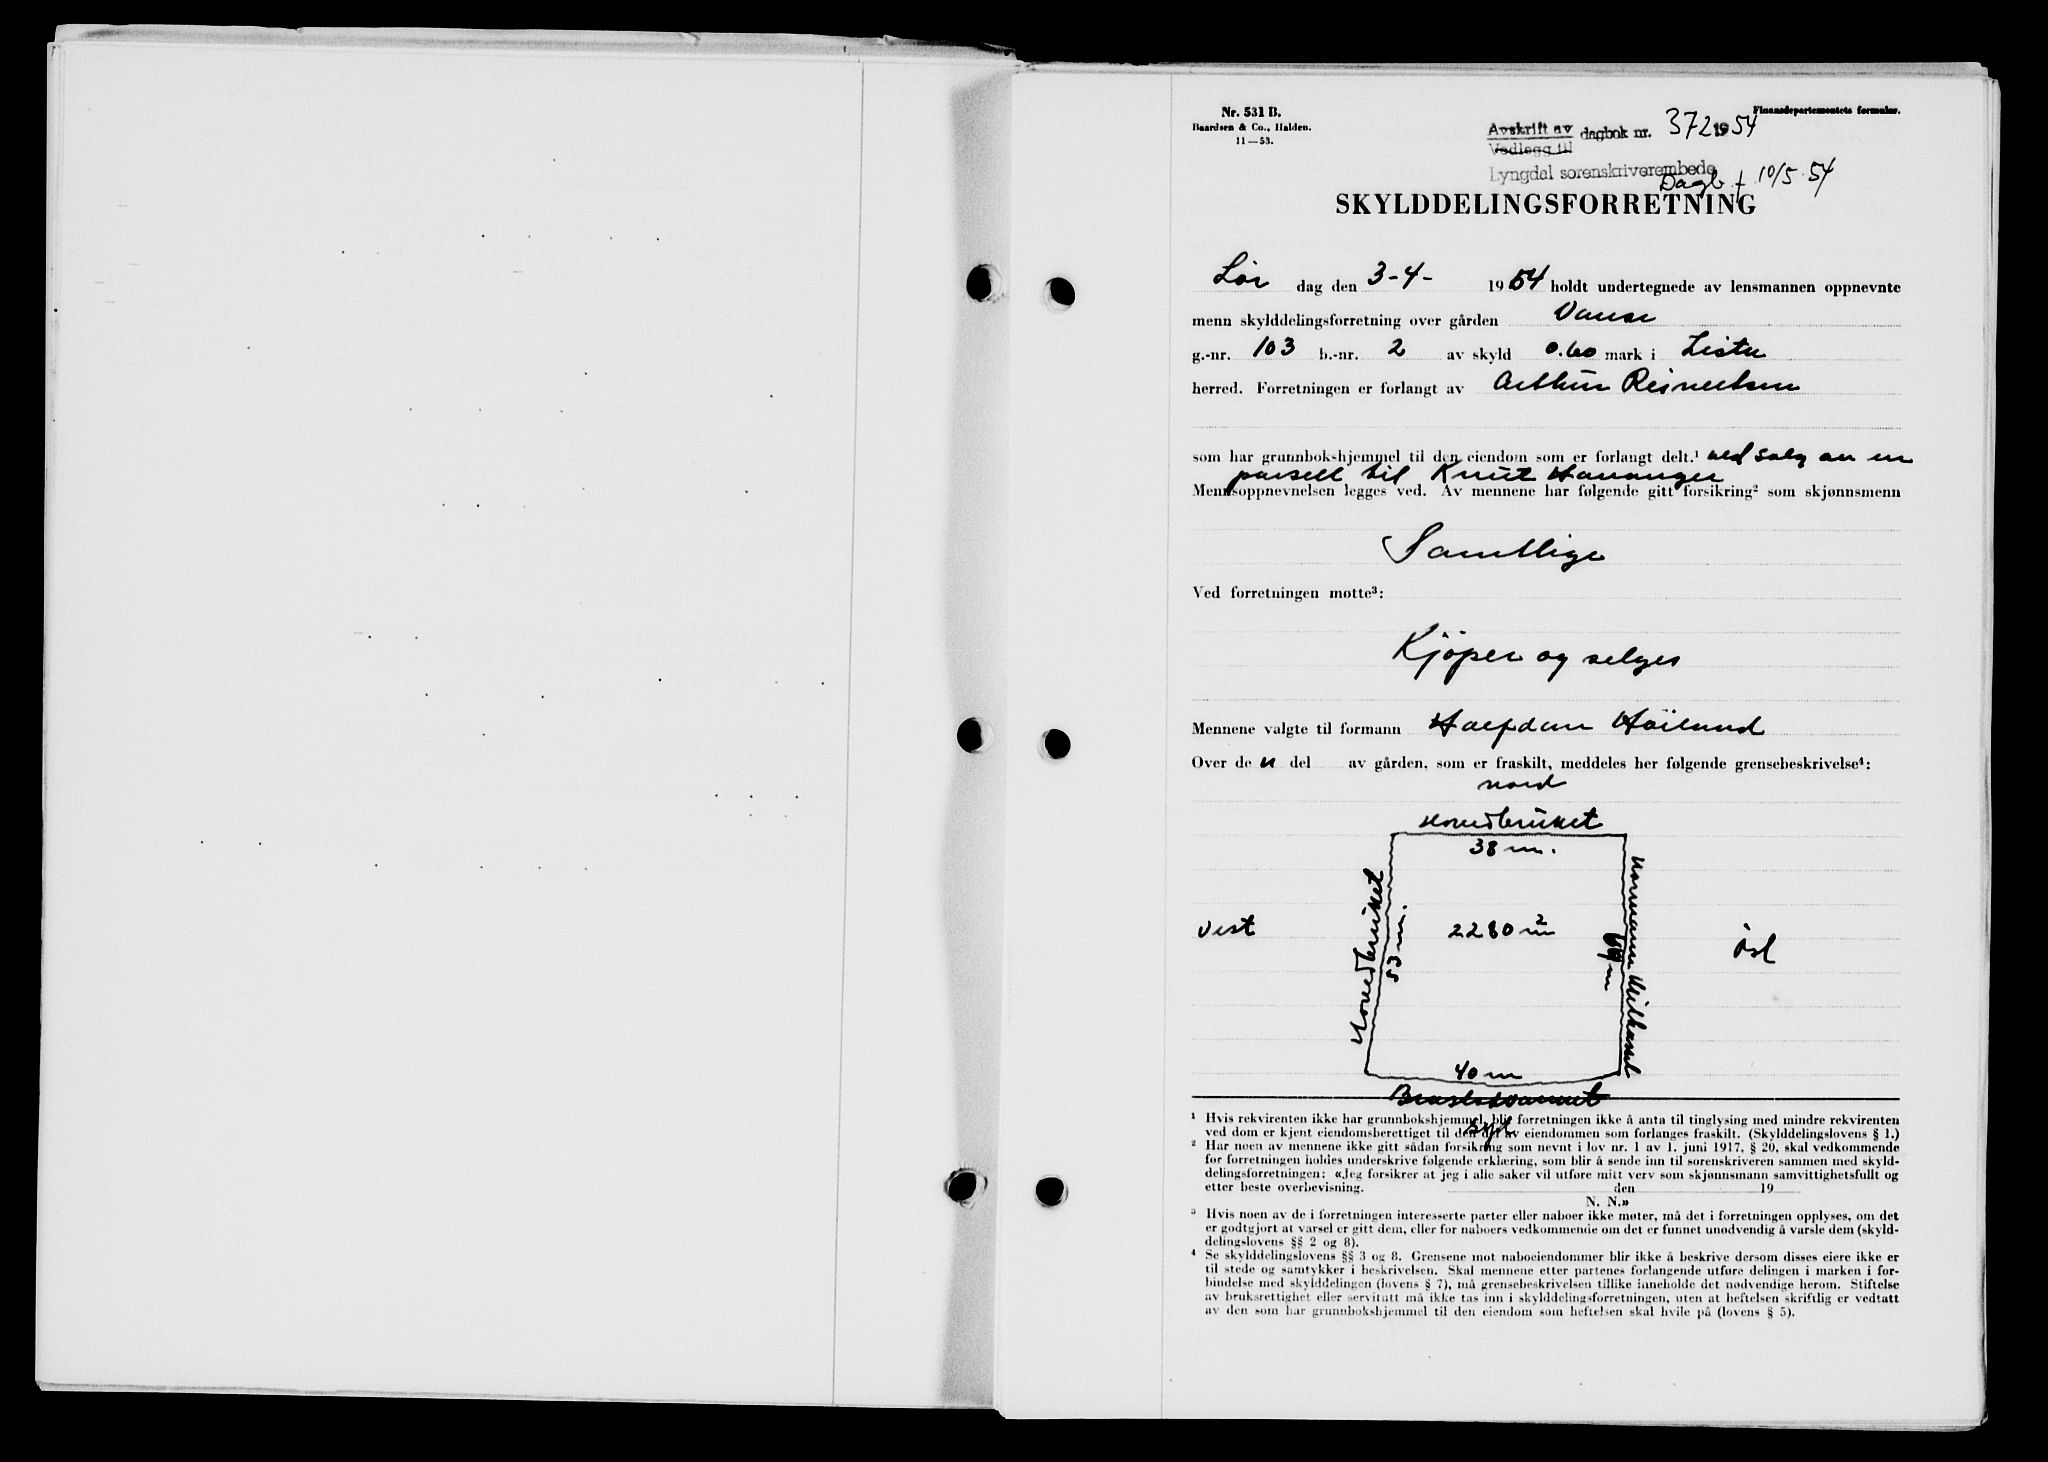 Nr. 531 B.
Baardsen & Co., Halden.
11—53.
Finansdepartementets formular.
Avskrift av dagbok nr. 372 1954
Vedlegg til
Lyngdal sorenskriverembede
Dagb f 10/5 54
SKYLDDELINGSFORRETNING
Lør dag den 3-4- 1954 holdt undertegnede av lensmannen oppnevnte
menn skylddelingsforretning over gården Vanse
g.-nr. 103 b.-nr. 2 av skyld 0.60 mark i Lista
herred. Forretningen er forlangt av Arthur Reinertsen
som har grunnbokshjemmel til den eiendom som er forlangt delt.¹ ved salg av en
parsell til Knut Hananger
Mennsoppnevnelsen legges ved. Av mennene har følgende gitt forsikring² som skjønnsmenn
Samtlige
Ved forretningen møtte³:
Kjøper og selger
Mennene valgte til formann Halfdan Høiland
Over de n del av gården, som er fraskilt, meddeles her følgende grensebeskrivelse⁴:
nord
Hovedbruket
38 m.
Hovedbruket
53 m.
Vest
2280 m²
m
Normann
Øst
40 m
syd
¹ Hvis rekvirenten ikke har grunnbokshjemmel, blir forretningen ikke å anta til tinglysing med mindre rekvirenten
ved dom er kjent eiendomsberettiget til den del av eiendommen som forlanges fraskilt. (Skylddelingslovens § 1.)
² Har noen av mennene ikke gitt sådan forsikring som nevnt i lov nr. 1 av 1. juni 1917, § 20, skal vedkommende
før forretningen holdes underskrive følgende erklæring, som blir å sende inn til sorenskriveren sammen med skyld-
delingsforretningen: «Jeg forsikrer at jeg i alle saker vil utføre mitt verv som skjønnsmann samvittighetsfullt og
etter beste overbevisning. den 19
N. N.»
³ Hvis noen av de i forretningen interesserte parter eller naboer ikke møter, må det i forretningen opplyses, om det
er godtgjort at varsel er gitt dem, eller for naboers vedkommende om det er funnet unødvendig å varsle dem (skyld-
delingslovens §§ 2 og 8).
⁴ Se skylddelingslovens §§ 3 og 8. Grensene mot naboeiendommer blir ikke å beskrive dersom disses eiere ikke er
til stede og samtykker i beskrivelsen. Skal mennene etter partenes forlangende utføre delingen i marken i for-
bindelse med skylddelingen (lovens § 7), må grensebeskrivelsen tillike inneholde det nødvendige herom. Stiftelse
av bruksrettighet eller servitutt må ikke tas inn i skylddelingsforretningen, uten at heftelsen skriftlig er vedtatt
av den som har grunnbokshjemmel til den eiendom som heftelsen skal hvile på (lovens § 5).